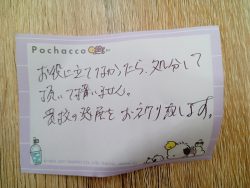 Pochacco
お役に立てなかったら、処分して
頂いて構いません。
貴校の発展をお祈り致します。